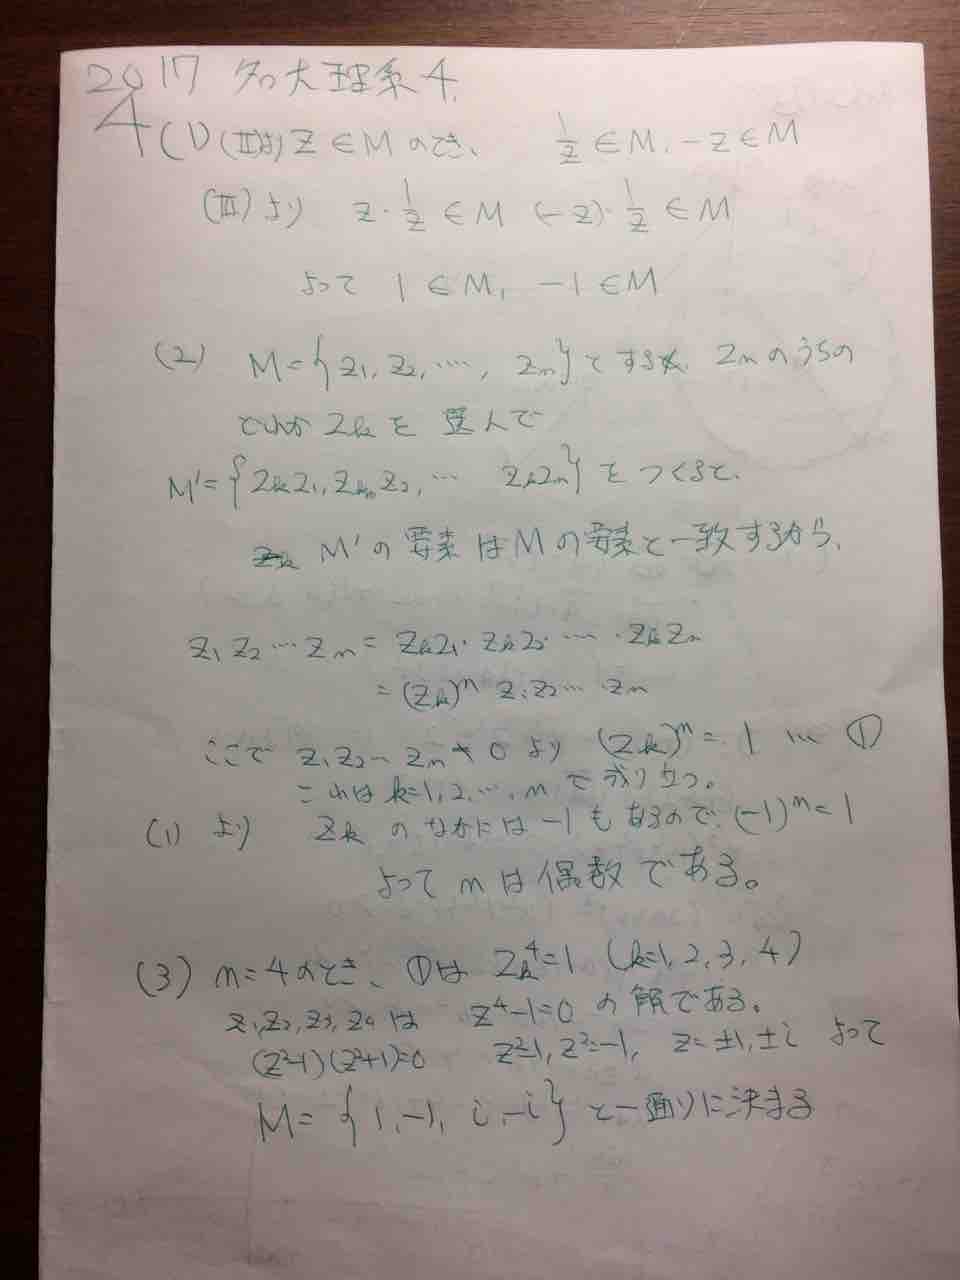 2017 名大理系4.
4 (1) (II)より Z ∈ M のとき、 1/z ∈ M, -z ∈ M
(III) より z・1/z ∈ M (-z)・1/z ∈ M
よって 1 ∈ M, -1 ∈ M
(2) M = {z₁, z₂, …, zn} とする。 znのうちの
どれか zk を 選んで
M' = {zkz₁, zkz₂, … zkzn} を つくると、
M' の 要素 は M の 要素 と 一致するから、
z₁ z₂ … zn = zkz₁・zkz₂・…・zkzn
= (zk)ⁿ z₁z₂…・zn
ここで z₁z₂…zn ≠ 0 より (zk)ⁿ = 1 … ①
これは k=1, 2, …, n で成り立つ。
(1) より zk のなかには -1 もあるので、(-1)ⁿ = 1
よって n は 偶数 である。
(3) n=4のとき、 ①は zk⁴=1 (k=1, 2, 3, 4)
z₁,z₂,z₃,z₄ は z⁴-1=0 の 解である。
(z²-1)(z²+1)=0 z²=1, z²=-1, z=±1,±i よって
M = {1, -1, i, -i} と一通りに決まる